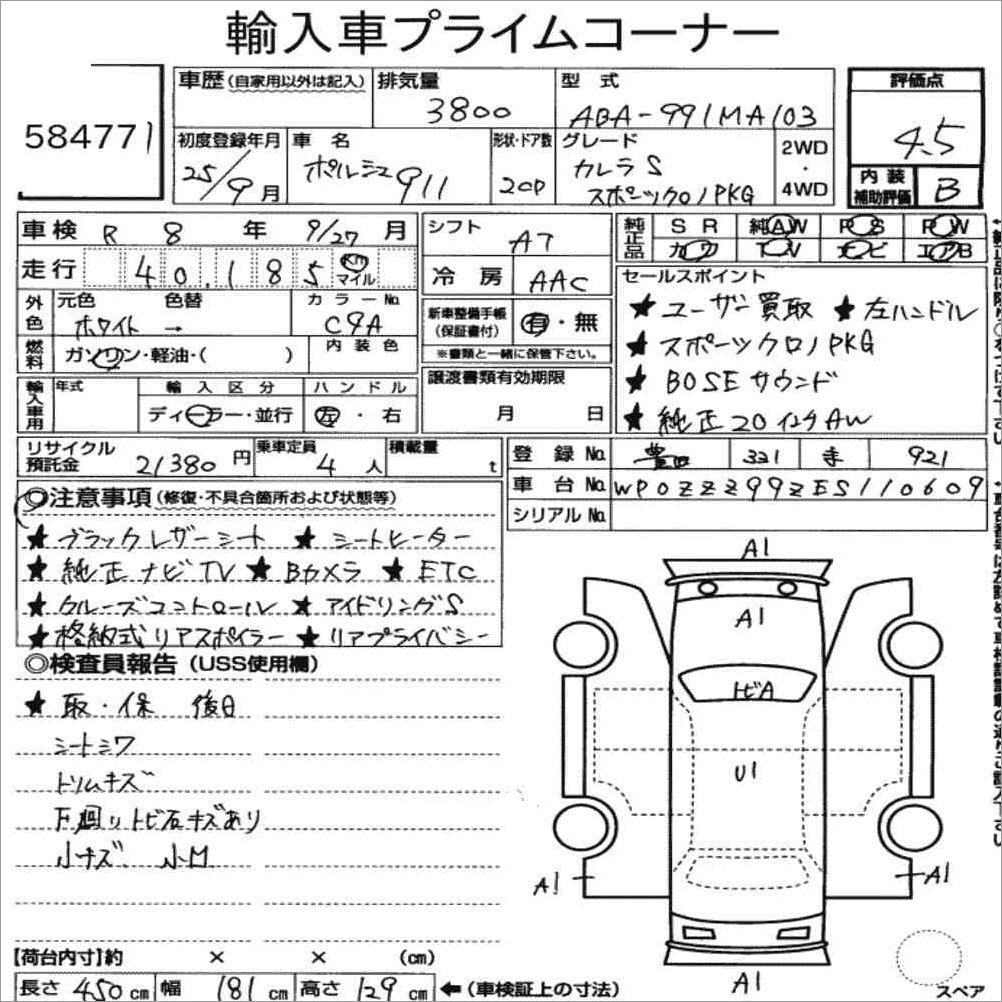 輸入車プライムコーナー
584771
車歴(自家用以外は記入)
排気量
3800
型式
ABA-991MA103
評価点
4.5
初度登録年月
25/9月
車名
ポルシェ911
形状・ドア数
2CP
グレード
カレラS
スポーツクロノPKG
2WD
・
4WD
内装
補助評価
B
車検 R 8 年 9/27 月
走行 40,185 Km マイル
外色
元色 色替
ホワイト →
カラーNo.
C9A
燃料
ガソリン・軽油・( )
内装色
輸入車用
年式
輸入区分
ディーラー・並行
ハンドル
左・右
シフト AT
冷房 AAC
新車整備手帳
(保証書付)
有・無
※書類と一緒に保管下さい。
譲渡書類有効期限
月 日
純正品
SR 純AW PS PW
カワ TV ナビ エアB
セールスポイント
★ユーザー買取 ★左ハンドル
★スポーツクロノPKG
★BOSEサウンド
★純正20インチAW
リサイクル
預託金
21380円
乗車定員
4人
積載量
t
登録No. 豊田 331 921
車台No. WP0ZZZ99ZES110609
シリアルNo.
◎注意事項(修復・不具合箇所および状態等)
★ブラックレザーシート ★シートヒーター
★純正ナビTV ★Bカメラ ★ETC
★クルーズコントロール ★アイドリングS
★格納式リアスポイラー ★リアプライバシー
◎検査員報告(USS使用欄)
★取・保 後日
シートシワ
トリムキズ
下廻りトビ石キズあり
小キズ 小M
A1
A1
トビA
U1
A1
A1
A1
スペア
【荷台内寸】約 × × (cm)
長さ 450cm 幅 181cm 高さ 129cm ←(車検証上の寸法)